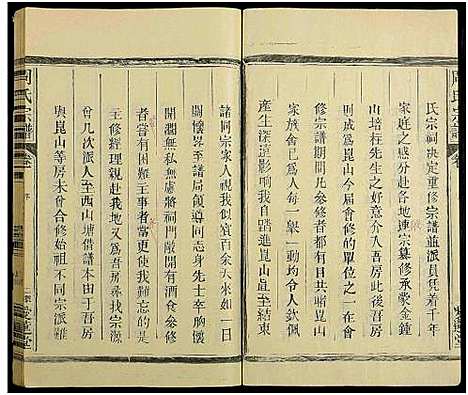 氏宗祠決定重修宗譜並派員凭着千年
家庭之感分赴各地連宗纂修承蒙金鍾
山培柱先生之好意介入吾房此後吾房
又成為崑山今届會修的單位之一在會
修宗譜期間凡參修者都視我們為同宗
人為此每一舉一動均令人欽佩
產生深遠影响我自踏進崑山直至結束
諸同宗家人視我似賓百余天來如一日
關懷至至譜局領導同志身先士卒胸懷
開濶無私無慮將祠門敞開有食參修
者嘗有困難者當更使我難忘的是
主修經理親赴我地又為吾房找宗源
曾几次派人至西山塘借譜本由于吾房
與崑山等房未曾合修始祖不同宗派难
周氏宗譜
卷
序
愛蓮堂